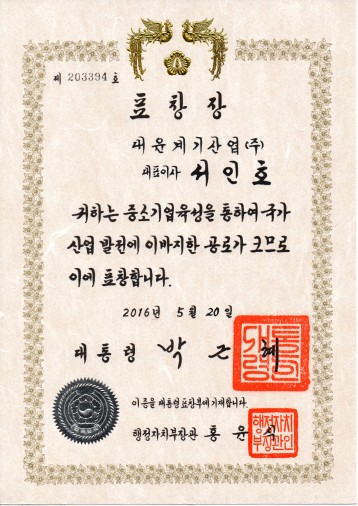 제 203394 호
표창장
대윤계기산업(주)
대표이사 서인호
귀하는 중소기업육성을 통하여 국가
산업 발전에 이바지한 공로가 크므로
이에 표창합니다.
2016년 5월 20일
대통령 박근혜
이 증을 대통령표창부에 기재합니다.
행정자치부장관 홍윤식
행정자치
부장관인